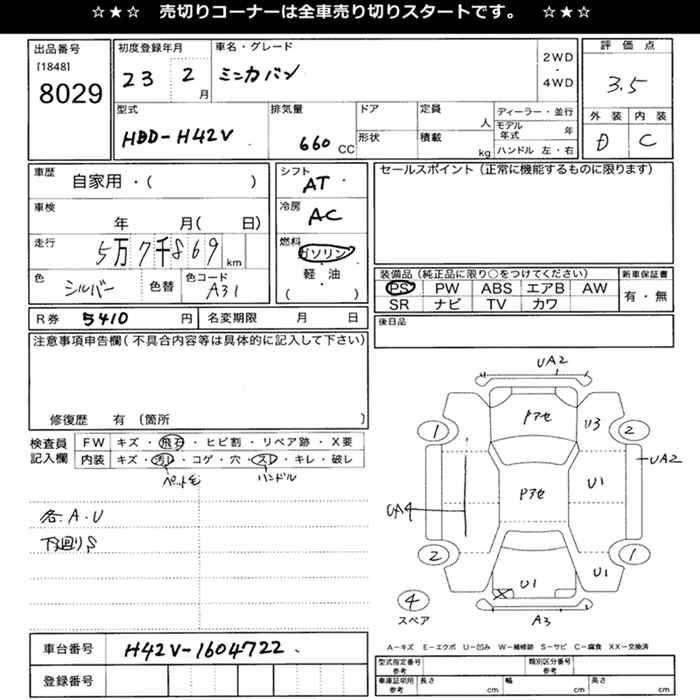 ☆★☆ 売切りコーナーは全車売り切りスタートです。 ☆★☆
出品番号
[1848]
8029
初度登録年月
23 2 月
車名・グレード
ミニカバン
2WD
・
4WD
評価点
3.5
型式
HBD-H42V
排気量
660 CC
ドア
形状
定員
人
積載
kg
ディーラー・並行
モデル年式 年
ハンドル 左・右
外装 内装
D C
車歴
自家用・( )
車検
年 月( 日)
走行
5万7千869 km
色
シルバー
色替
色コード
A31
シフト
AT
冷房
AC
燃料
ガソリン
軽・油
( )
セールスポイント (正常に機能するものに限ります)
装備品 (純正品に限り○をつけてください)
PS PW ABS エアB AW
SR ナビ TV カワ
新車保証書
有・無
R券 5410 円
名変期限 月 日
後日品
注意事項申告欄 (不具合内容等は具体的に記入して下さい)
修復歴 有 (箇所 )
検査員
記入欄
FW キズ・飛石・ヒビ割・リペア跡・X要
内装 キズ・汚レ・コゲ・穴・スレ・キレ・破レ
ペット毛
ハンドル
各A.U
下廻りS
UA2
Pアセ
U3
1
2
UA2
U1
Pアセ
UA4
2
1
U1
U1
4
スペア
A3
車台番号 H42V-1604722
登録番号
A-キズ E-エクボ U-凹み W-補修跡 S-サビ C-腐食 XX-交換済
型式指定番号
参考
類別区分番号
参考
車庫証明用
参考
長さ cm
幅 cm
高さ cm